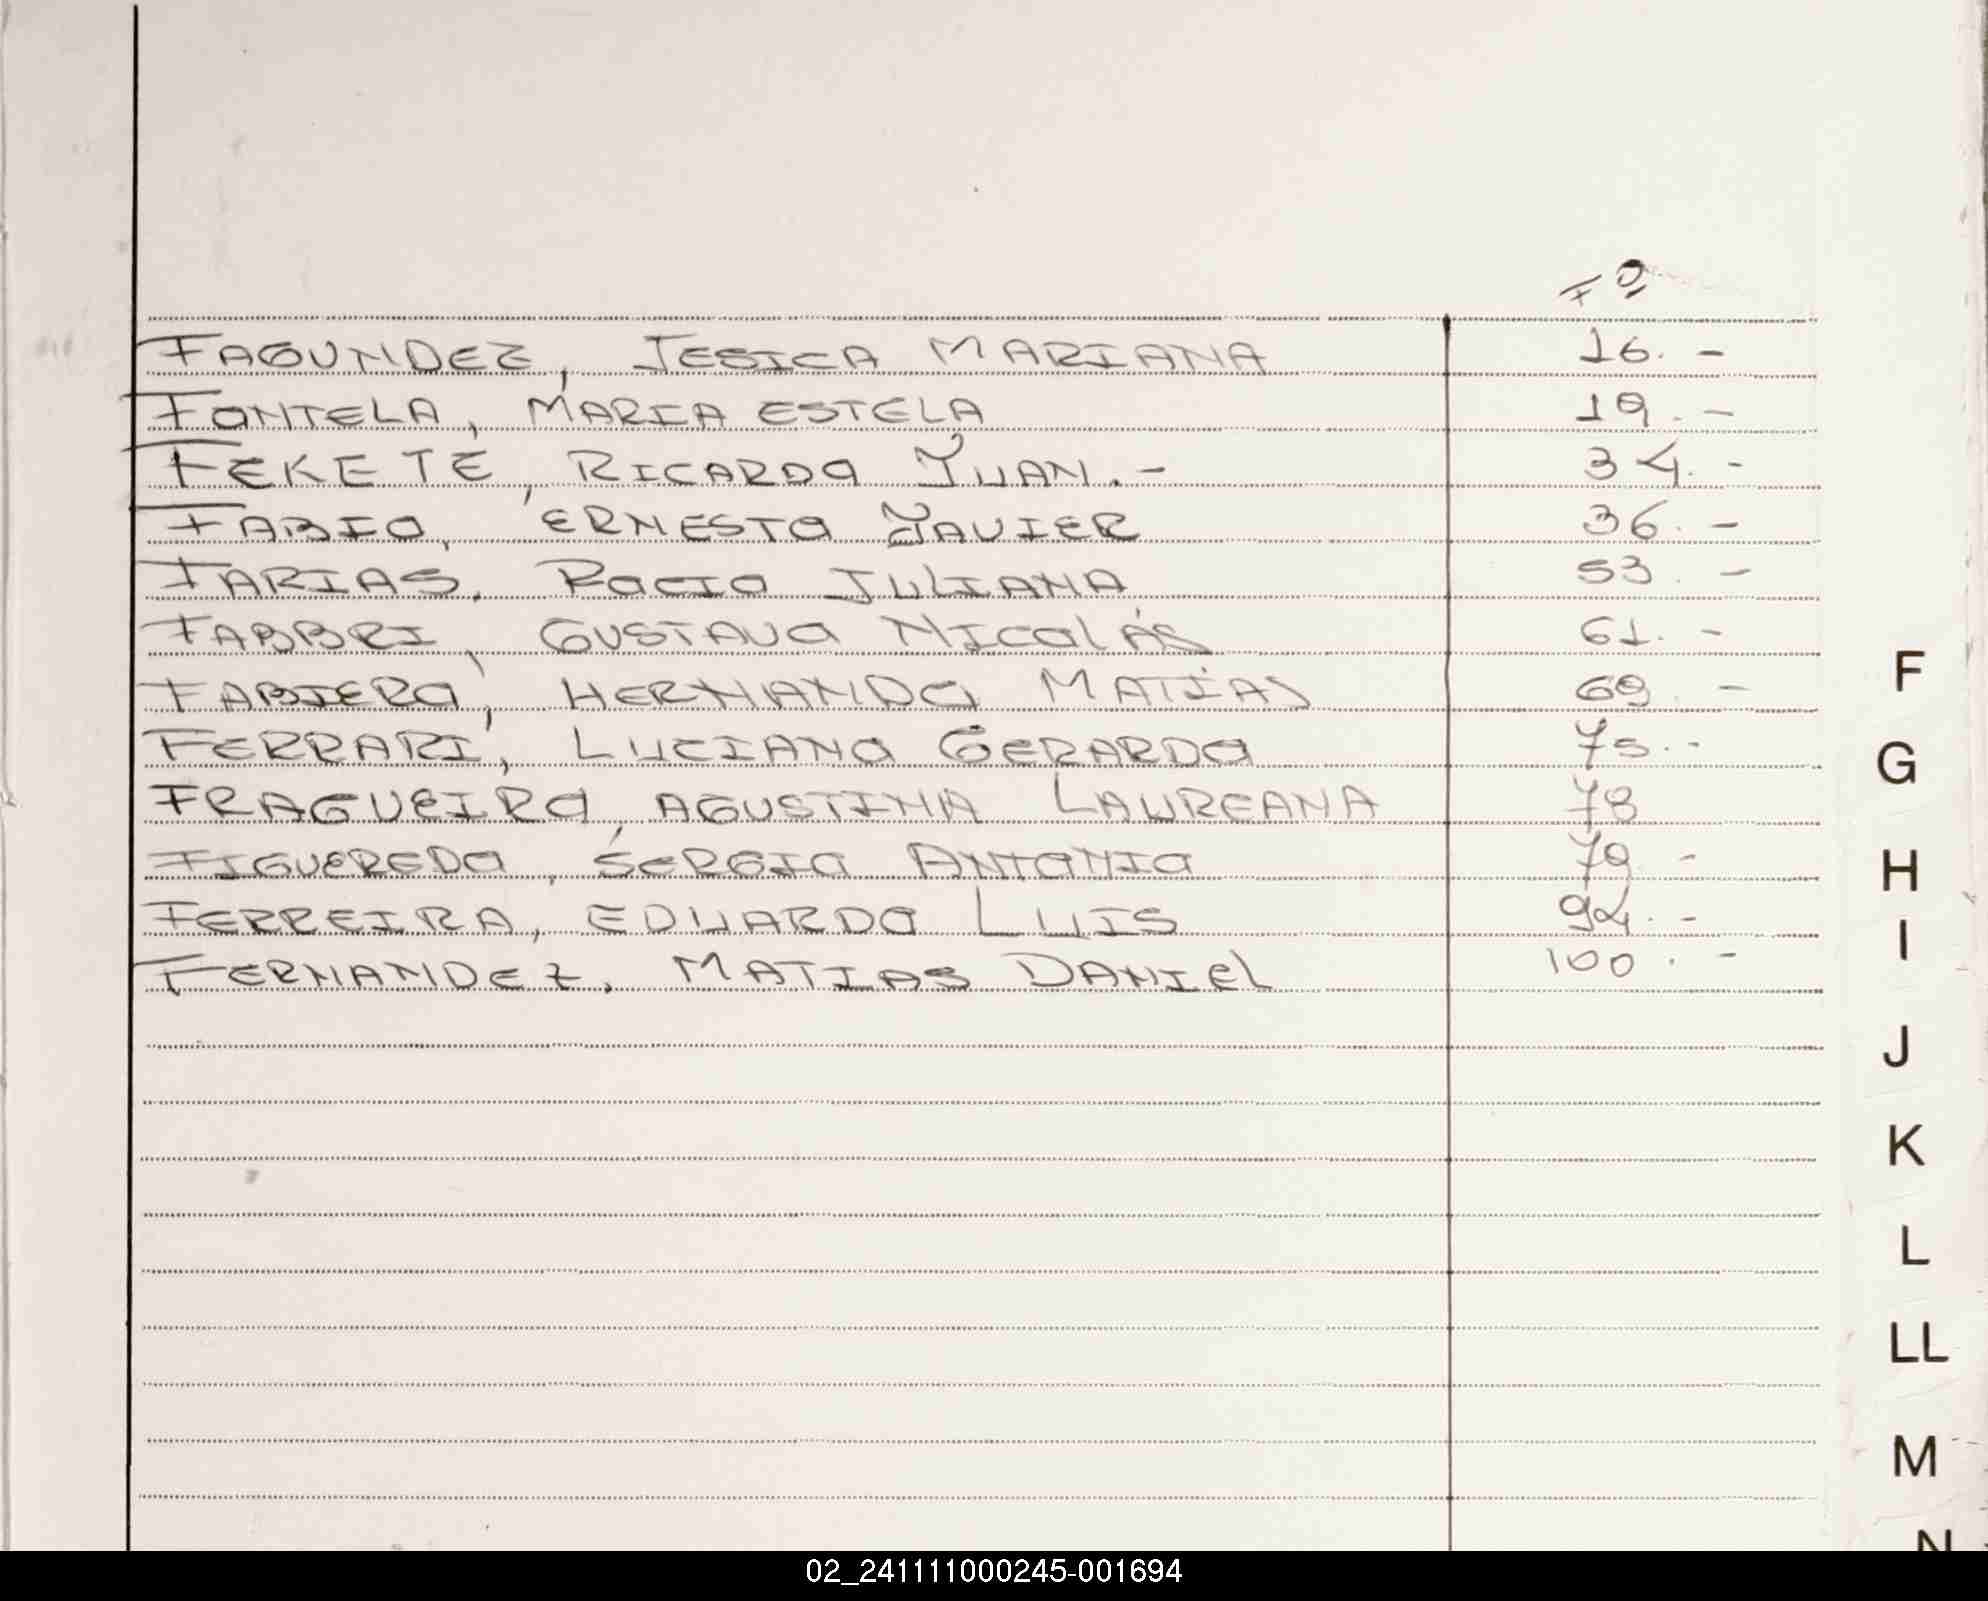 Fº
FAGUNDEZ, JESICA MARIANA 16.-
FONTELA, MARIA ESTELA 19.-
FEKETE, RICARDO JUAN.- 34.-
FABIO, ERNESTO JAVIER 36.-
FARIAS, ROCIO JULIANA 53.-
FABBRI, GUSTAVO NICOLÁS 61.-
FABIERO, HERNANDO MATÍAS 69.-
FERRARI, LUCIANO GERARDO 75.-
FRAGUEIRO, AGUSTINA LAUREANA 78
FIGUEREDO, SERGIO ANTONIO 79.-
FERREIRA, EDUARDO LUIS 94.-
FERNANDEZ, MATIAS DANIEL 100.-
F
G
H
I
J
K
L
LL
M
N
02_241111000245-001694